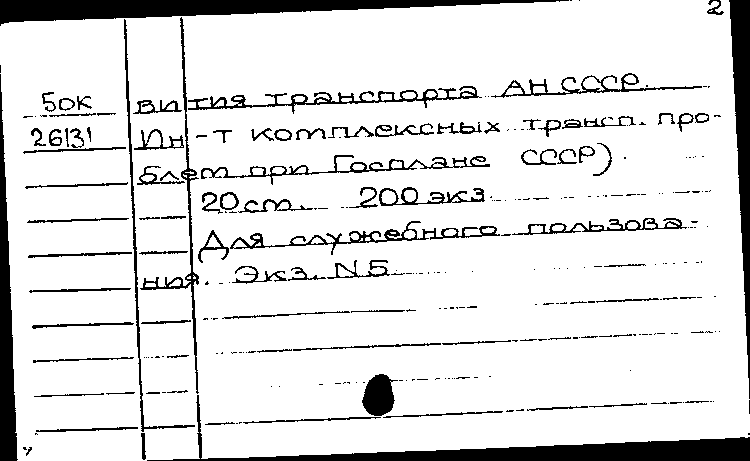 2
БОК вития транспорта АН СССР.
26131 Ин-т комплексных трансп. про-
блем при Госплане СССР).
20 см. 200 экз.
Для служебного пользова-
ния. Экз. N5